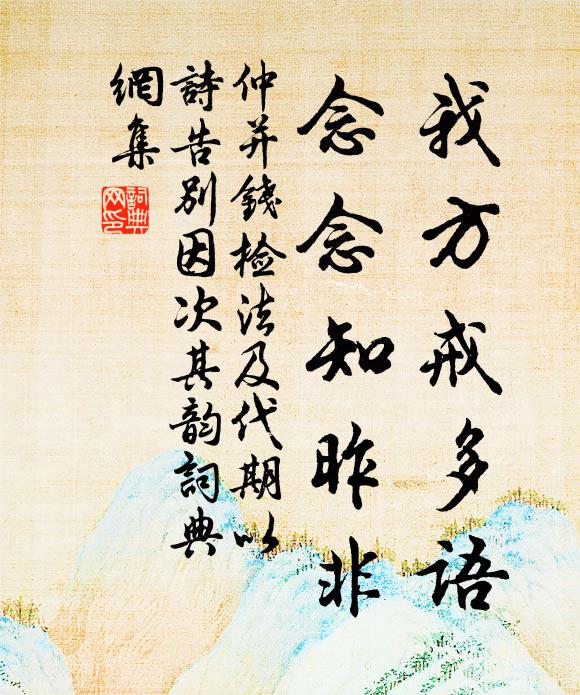 我方戒多语
念念知昨非
仲并錢檢法及代期以
詩告别因次其韵詞典
網集
詞典网印